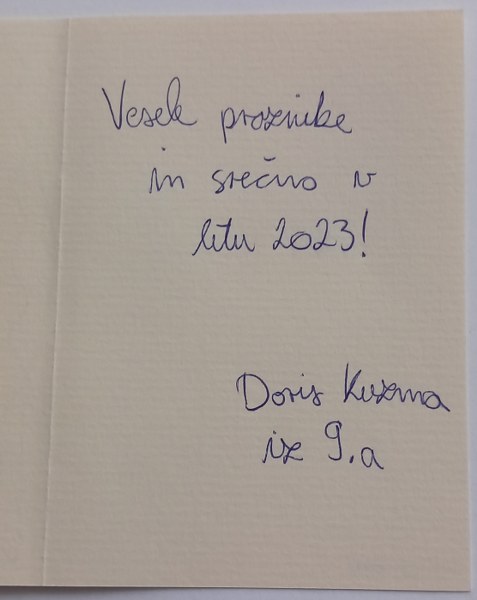 Vesele praznike
in srečno v
letu 2023!
Doris Kuzma
iz 9.a